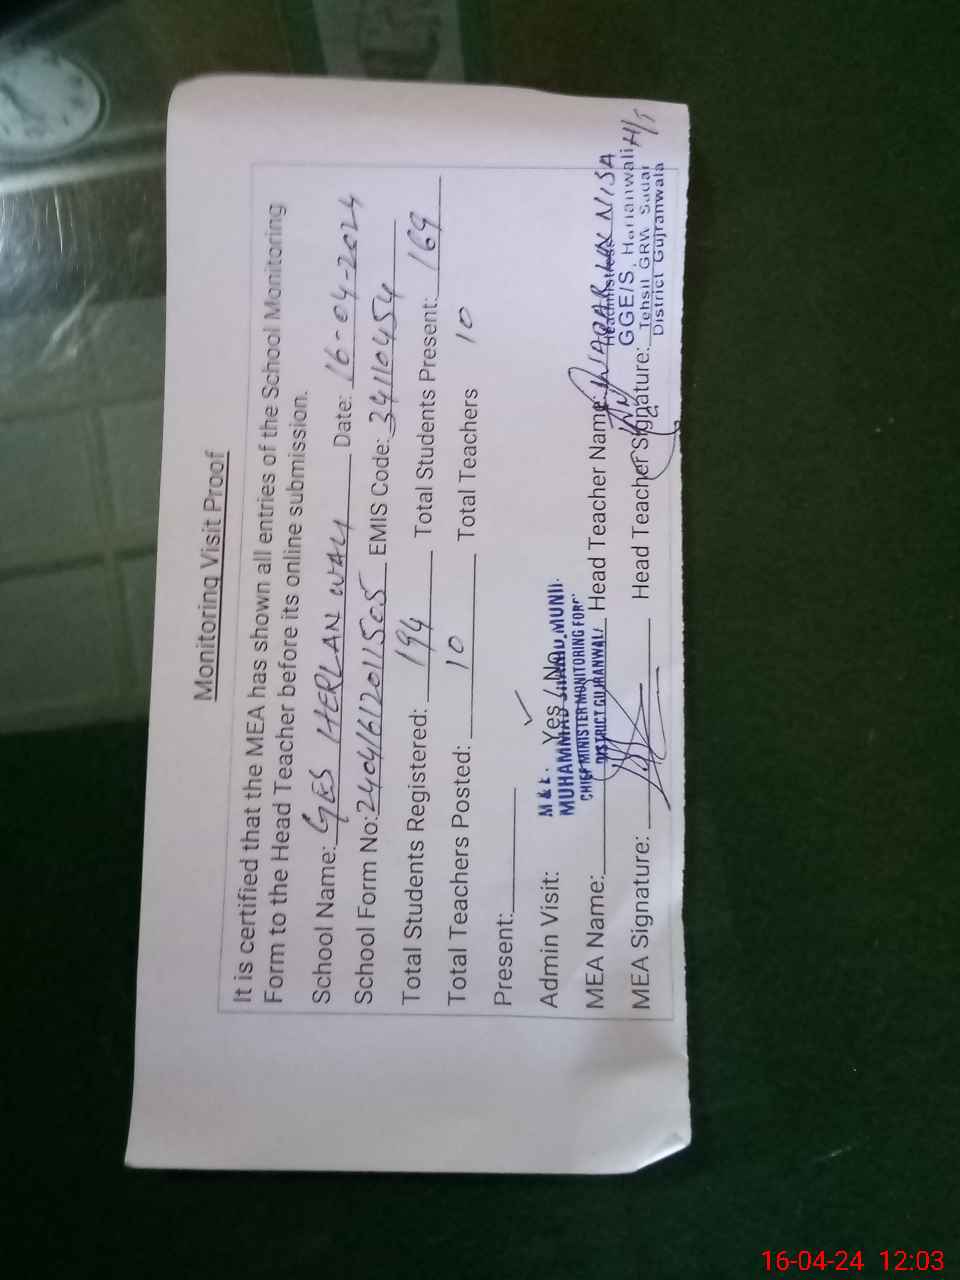 Monitoring Visit Proof
It is certified that the MEA has shown all entries of the School Monitoring
Form to the Head Teacher before its online submission.
School Name: GES HERLAN WALY Date: 16-04-2024
School Form No: 24041612011505 EMIS Code: 34110454
Total Students Registered: 194 Total Students Present: 169
Total Teachers Posted: 10 Total Teachers 10
Present:
Admin Visit: Yes / No
M & E.
MUHAMMAD MUNI
CHIEF MINISTER MONITORING FORC
DISTRICT GUJRANWALA
MEA Name: Head Teacher Name: WAQAR UN NISA
Headmistress H/T
GGE/S, Harianwali
Tehsil GRW Sadar
District Gujranwala
MEA Signature: Head Teacher Signature:
16-04-24 12:03